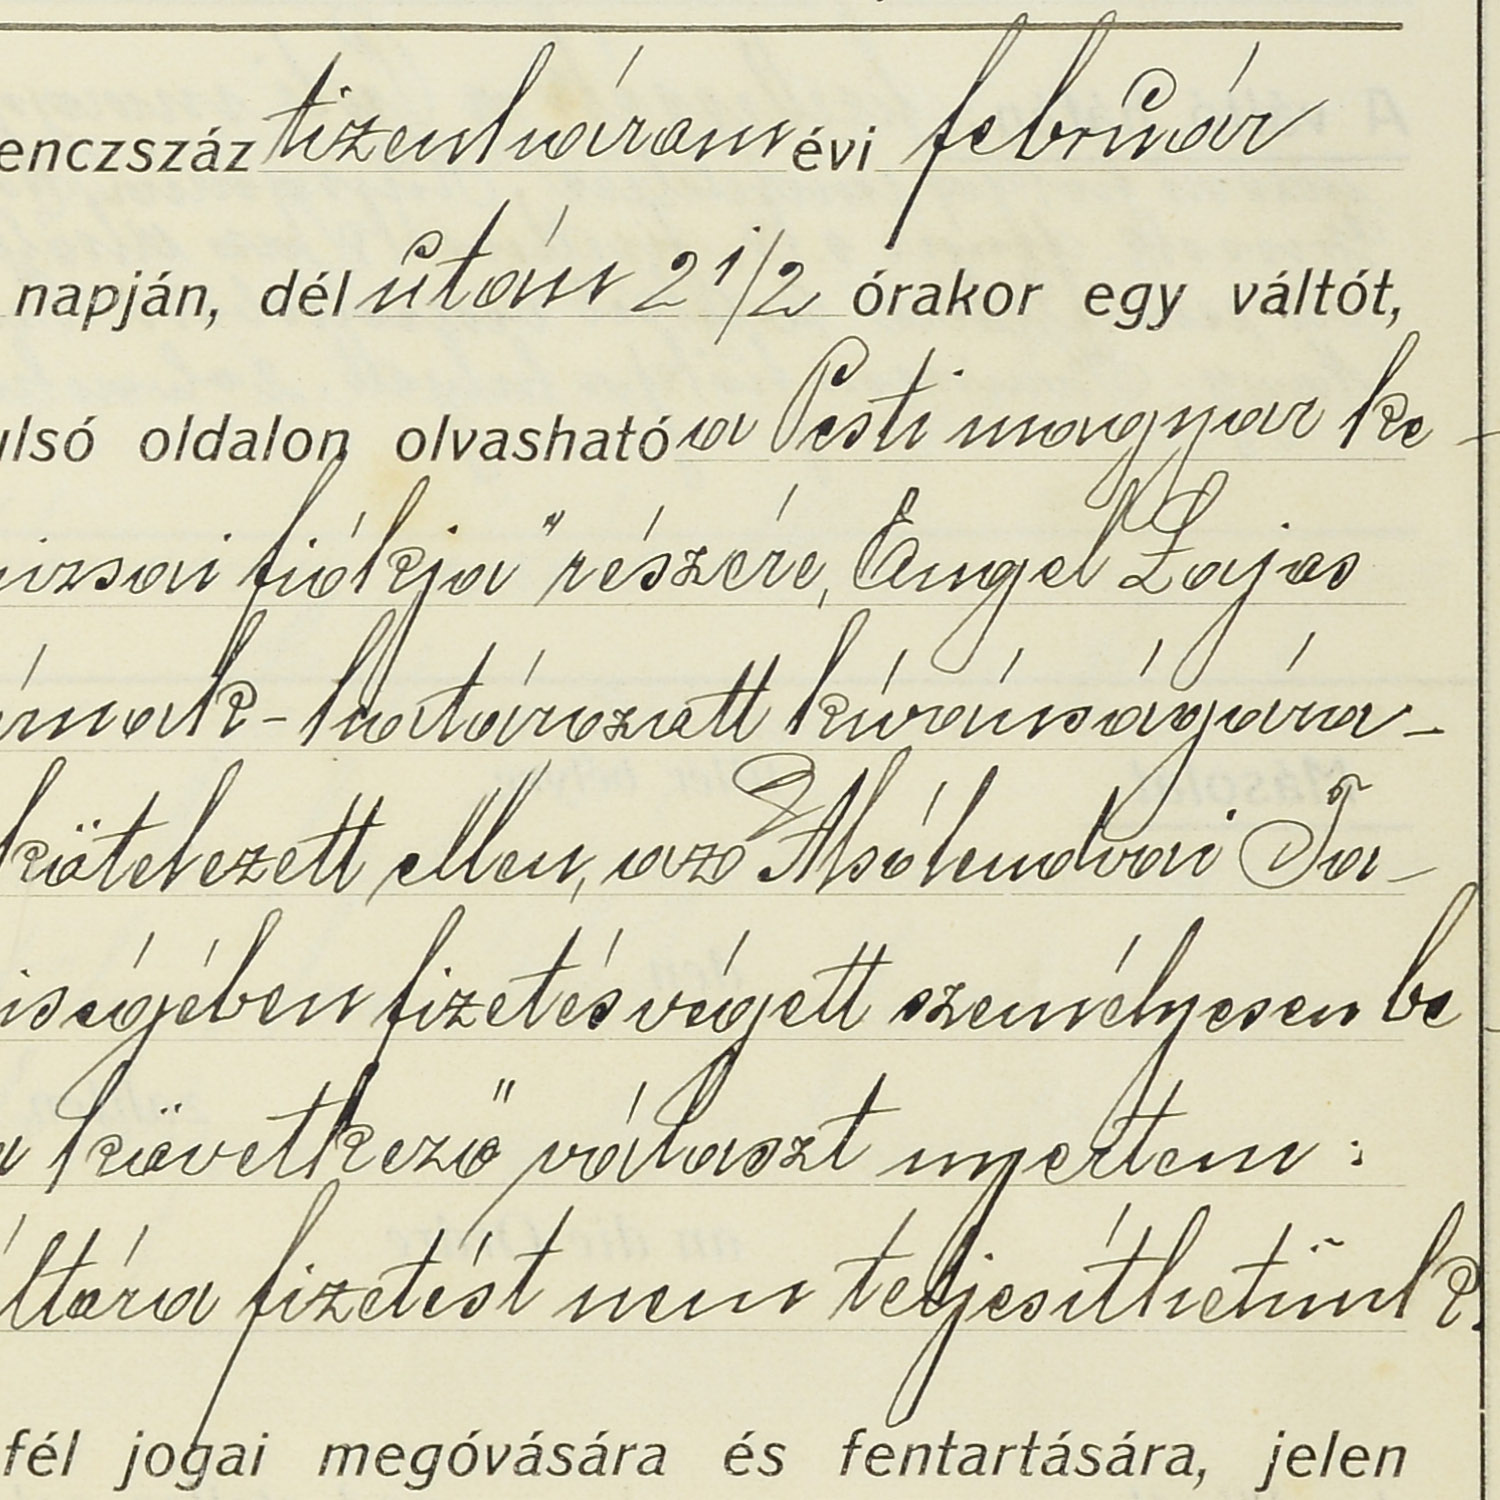 enczszáz tizenhárom évi február
napján, dél után 2 1/2 órakor egy váltót,
ulsó oldalon olvasható a Pesti magyar ke
izsai fiókja" részére, Engel Lajos
ának - határozott kívánságára -
kötelezett ellen, az Alsólendvai Ta-
iségében fizetés végett személyesen be
a következő választ nyertem :
áltóra fizetést nem teljesíthetünk.
fél jogai megóvására és fentartására, jelen